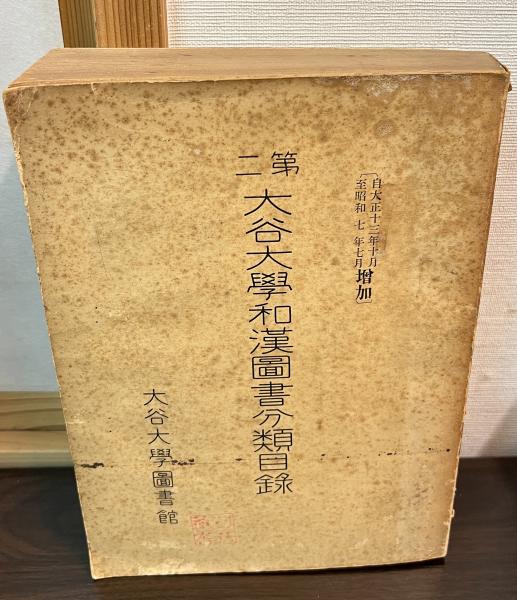 〔自大正十三年十月
至昭和七年七月
增加〕
第二
大谷大學和漢圖書分類目錄
大谷大學圖書館